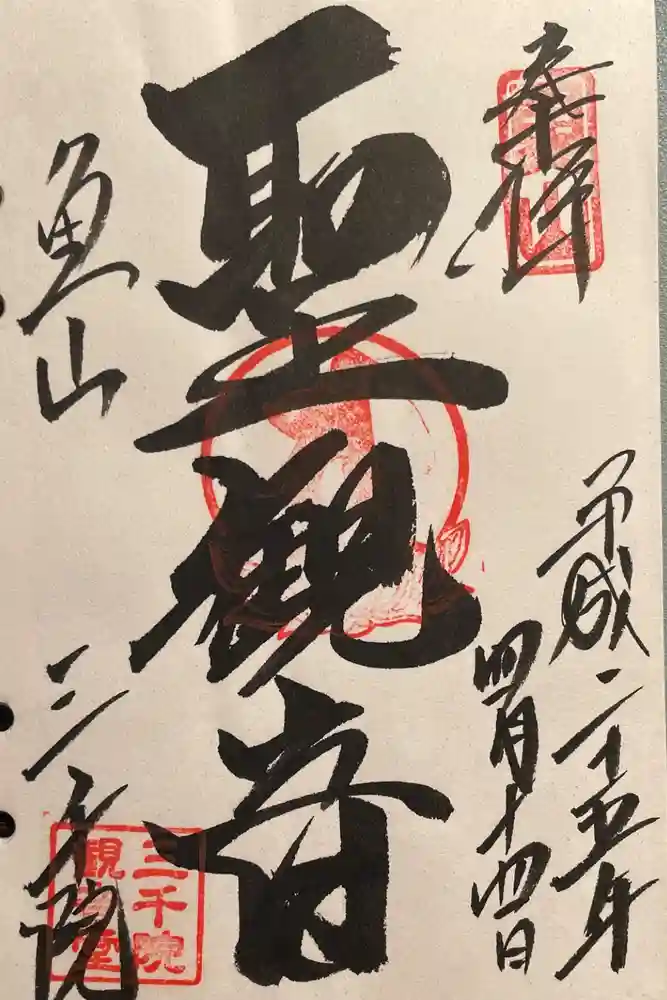 奉拝
平成二十五年
四月十四日
聖観音
魚山
三千院
三千院
観音堂